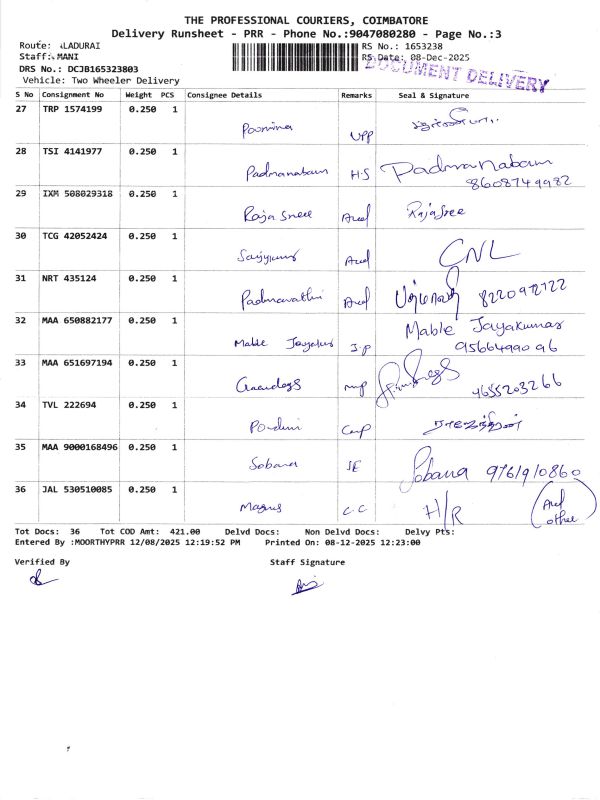 THE PROFESSIONAL COURIERS, COIMBATORE
Delivery Runsheet - PRR - Phone No.:9047080280 - Page No.:3
Route: ALADURAI
RS No.: 1653238
Staff: MANI
RS Date: 08-Dec-2025
DRS No.: DCJB165323803
DOCUMENT DELIVERY
Vehicle: Two Wheeler Delivery
S No Consignment No Weight PCS Consignee Details Remarks Seal & Signature
27 TRP 1574199 0.250 1
Poornima
28 TSI 4141977 0.250 1
Padmanabam H.S Padmanabam
8608749982
29 IXM 508029318 0.250 1
Raja Sree RajaSree
30 TCG 42052424 0.250 1
CNL
31 NRT 435124 0.250 1
Padmavathi
32 MAA 650882177 0.250 1
Mable Jayakumar
Mable J.P
9566499096
33 MAA 651697194 0.250 1
34 TVL 222694 0.250 1
35 MAA 9000168496 0.250 1
Sobana SE Sobana
36 JAL 530510085 0.250 1
C.C H/R
Tot Docs: 36 Tot COD Amt: 421.00 Delvd Docs: Non Delvd Docs: Delvy Pts:
Entered By :MOORTHYPRR 12/08/2025 12:19:52 PM Printed On: 08-12-2025 12:23:00
Verified By Staff Signature